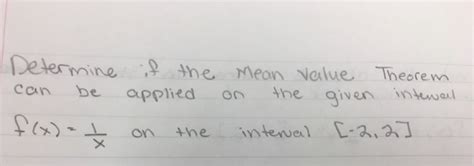 Determine if the Mean Value Theorem
can be applied on the given interval
f(x) = 1/x on the interval [-2, 2]